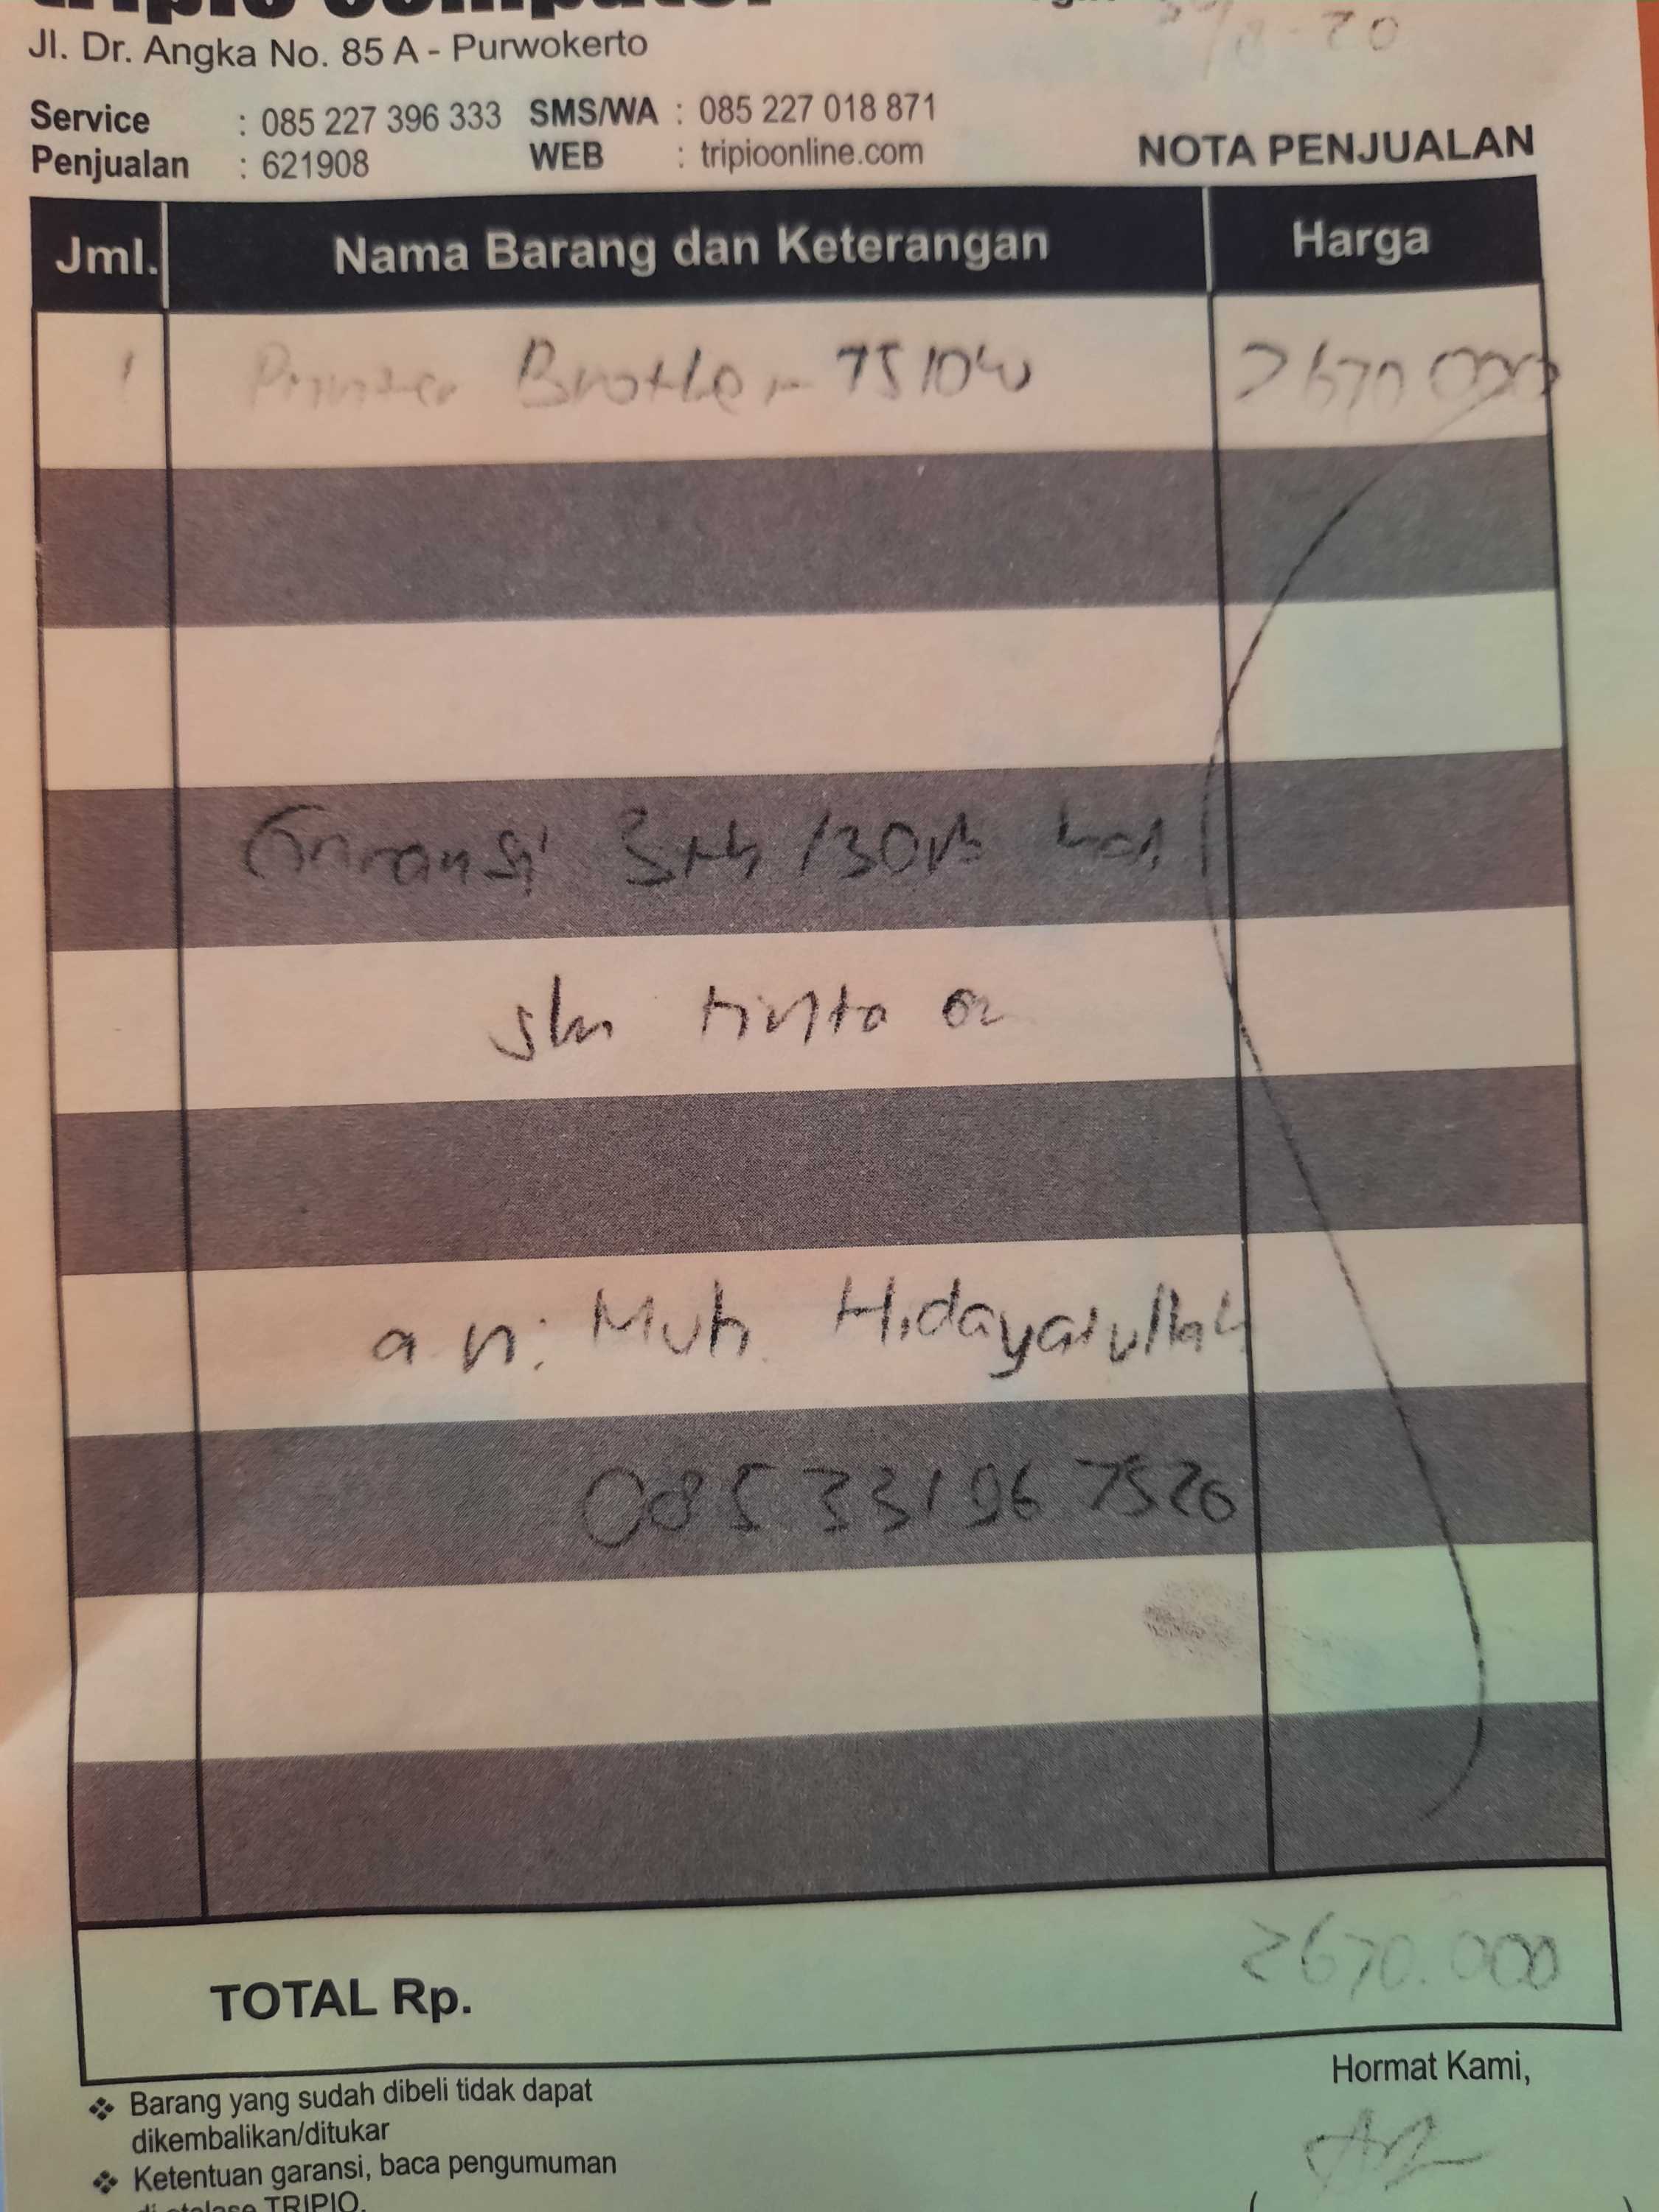 tripio computer
Jl. Dr. Angka No. 85 A - Purwokerto
8-20
Service : 085 227 396 333 SMS/WA : 085 227 018 871
Penjualan : 621908 WEB : tripioonline.com
NOTA PENJUALAN
Jml. Nama Barang dan Keterangan Harga
1 Printer Brother T510W 2670 000
Garansi 3th /30rb hal
tinta
a n: Muh. Hidayatullah
085 33196 7526
TOTAL Rp. 2670.000
Hormat Kami,
❖ Barang yang sudah dibeli tidak dapat
dikembalikan/ditukar
❖ Ketentuan garansi, baca pengumuman
di etalase TRIPIO.